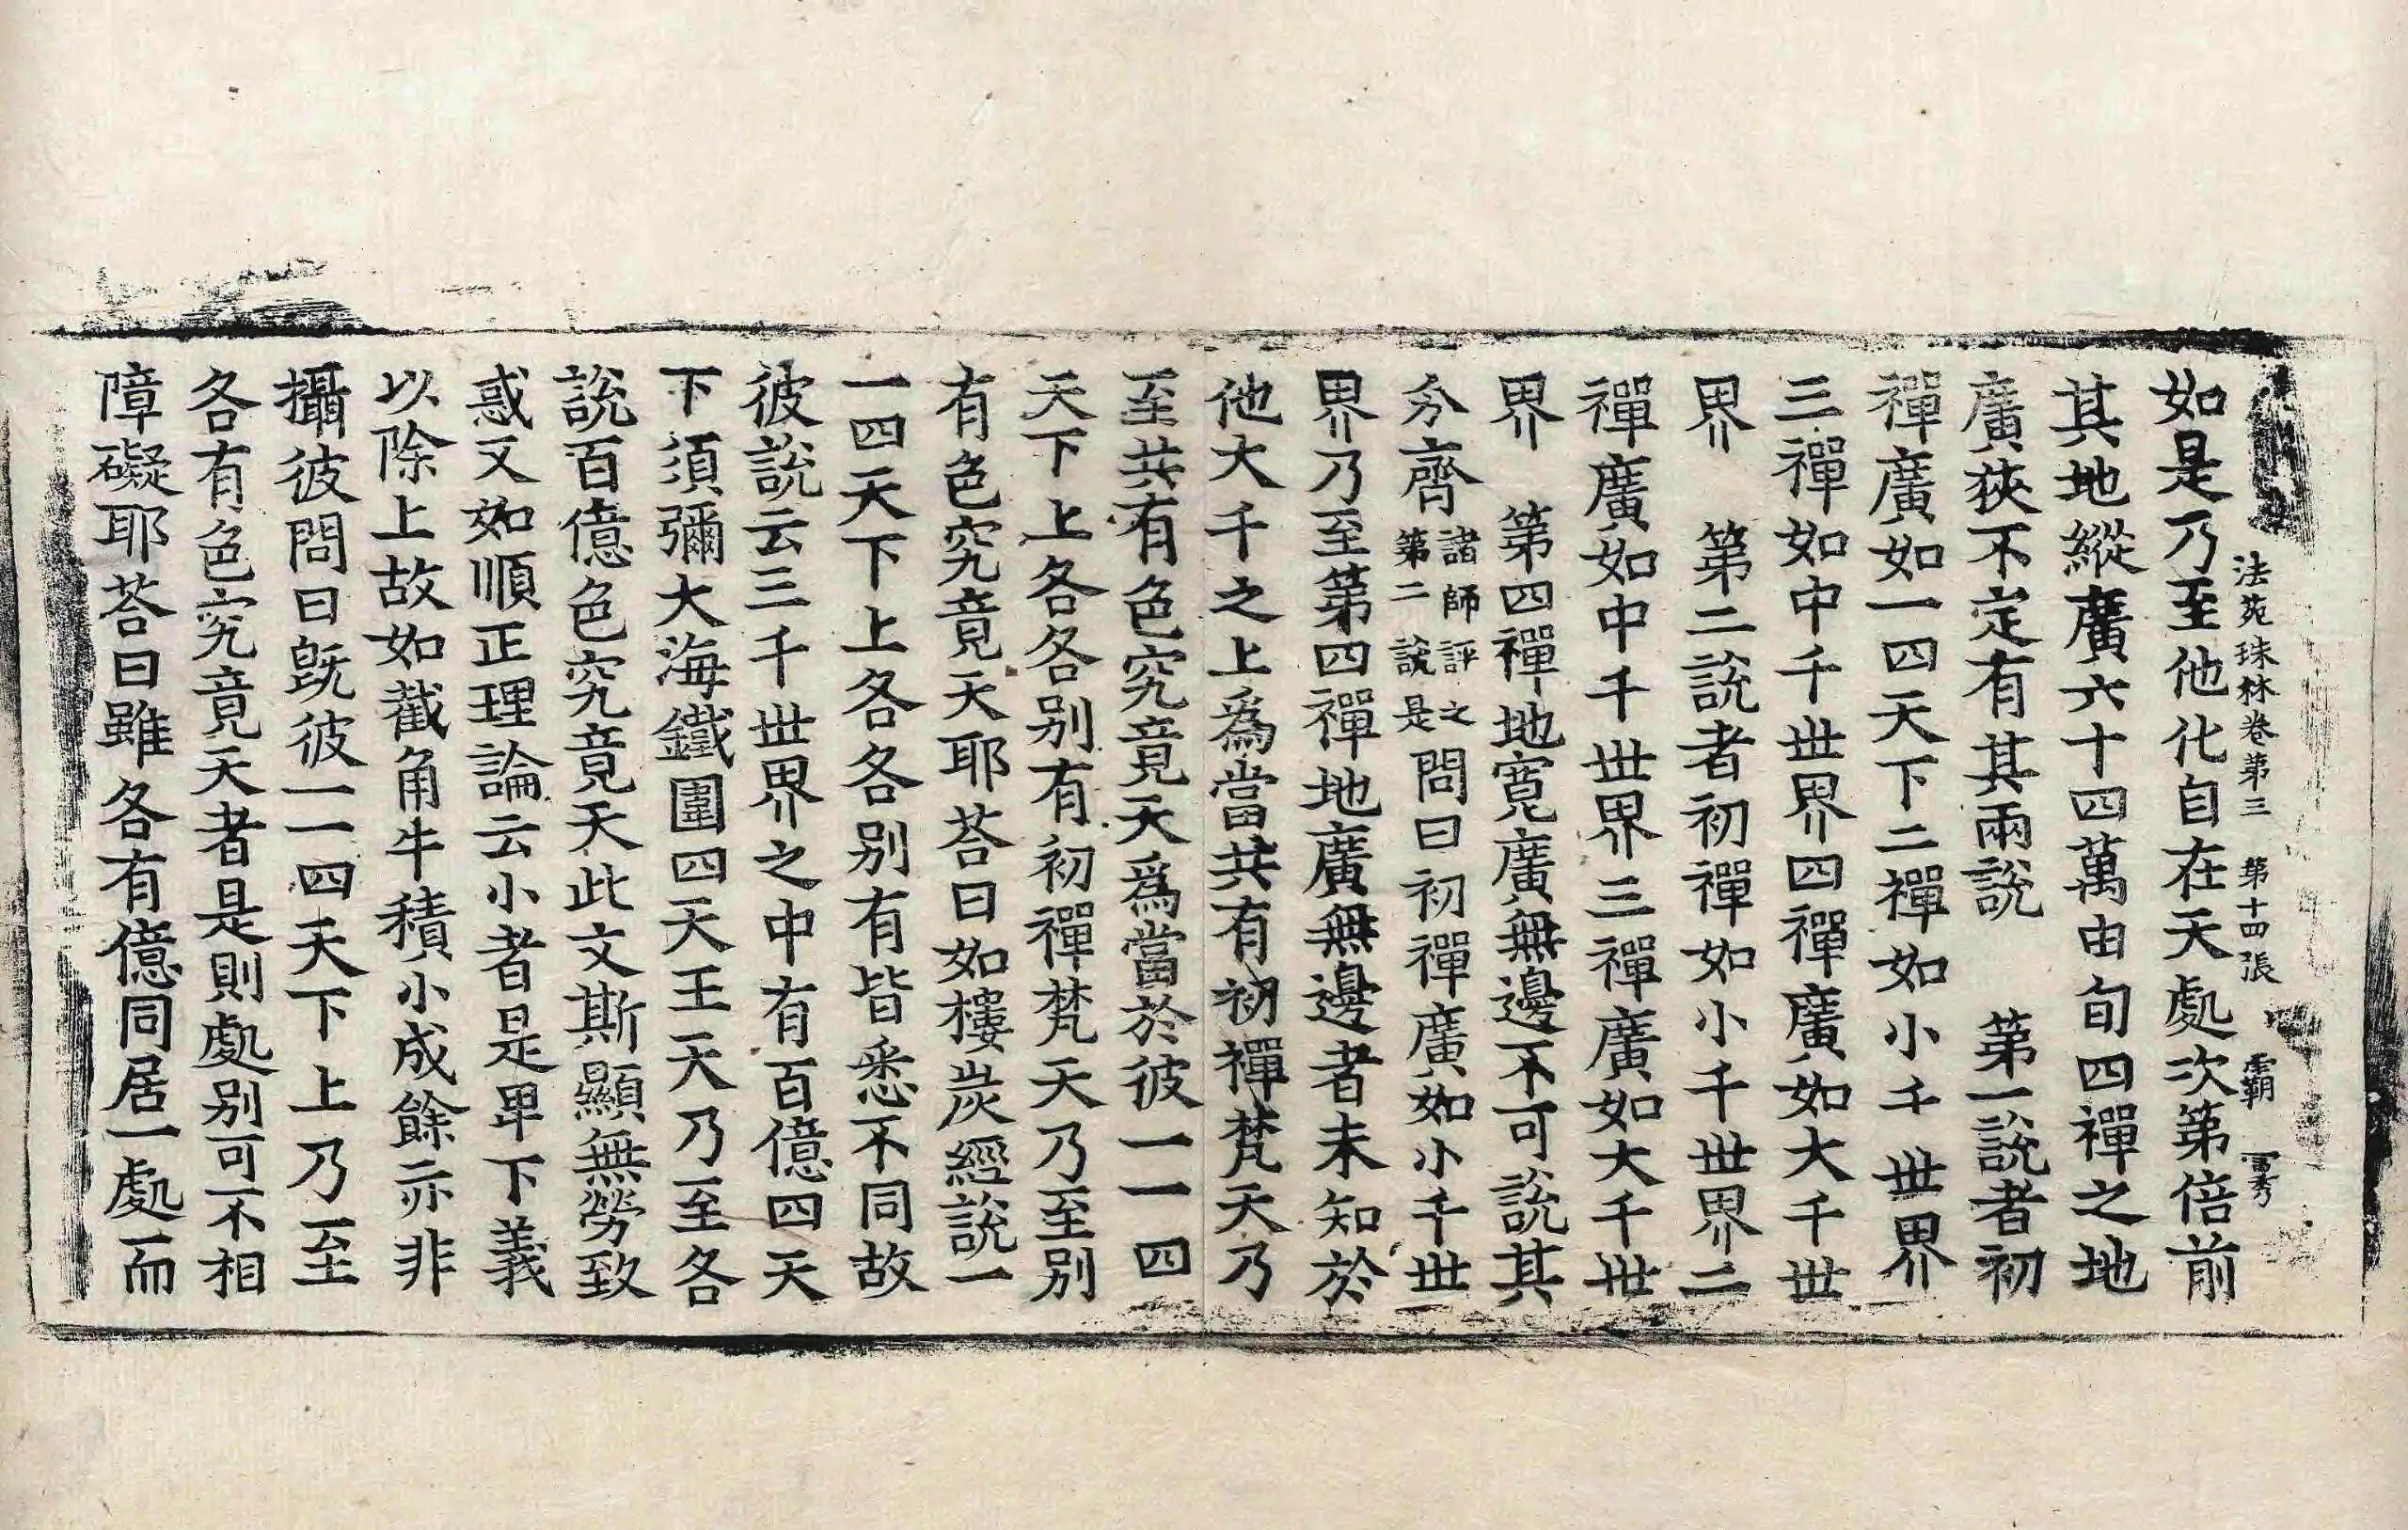 法苑珠林卷第三　第十四張　霸　富秀
如是乃至他化自在天處次第倍前
其地縱廣六十四萬由旬四禪之地
廣狹不定有其兩說　第一說者初
禪廣如一四天下二禪如小千世界
三禪如中千世界四禪廣如大千世
界　第二說者初禪如小千世界二
禪廣如中千世界三禪廣如大千世
界　第四禪地寬廣無邊不可說其
分齊諸師評之第二說是問曰初禪廣如小千世
界乃至第四禪地廣無邊者未知於
他大千之上爲當共有初禪梵天乃
至共有色究竟天爲當於彼一一四
天下上各各別有初禪梵天乃至別
有色究竟天耶荅曰如樓炭經說一
一四天下上各各別有皆悉不同故
彼說云三千世界之中有百億四天
下須彌大海鐵圍四天王天乃至各
說百億色究竟天此文斯顯無勞致
惑又如順正理論云小者是卑下義
以除上故如截角牛積小成餘亦非
攝彼問曰旣彼一一四天下上乃至
各有色究竟天者是則處別可不相
障礙耶荅曰雖各有億同居一處而